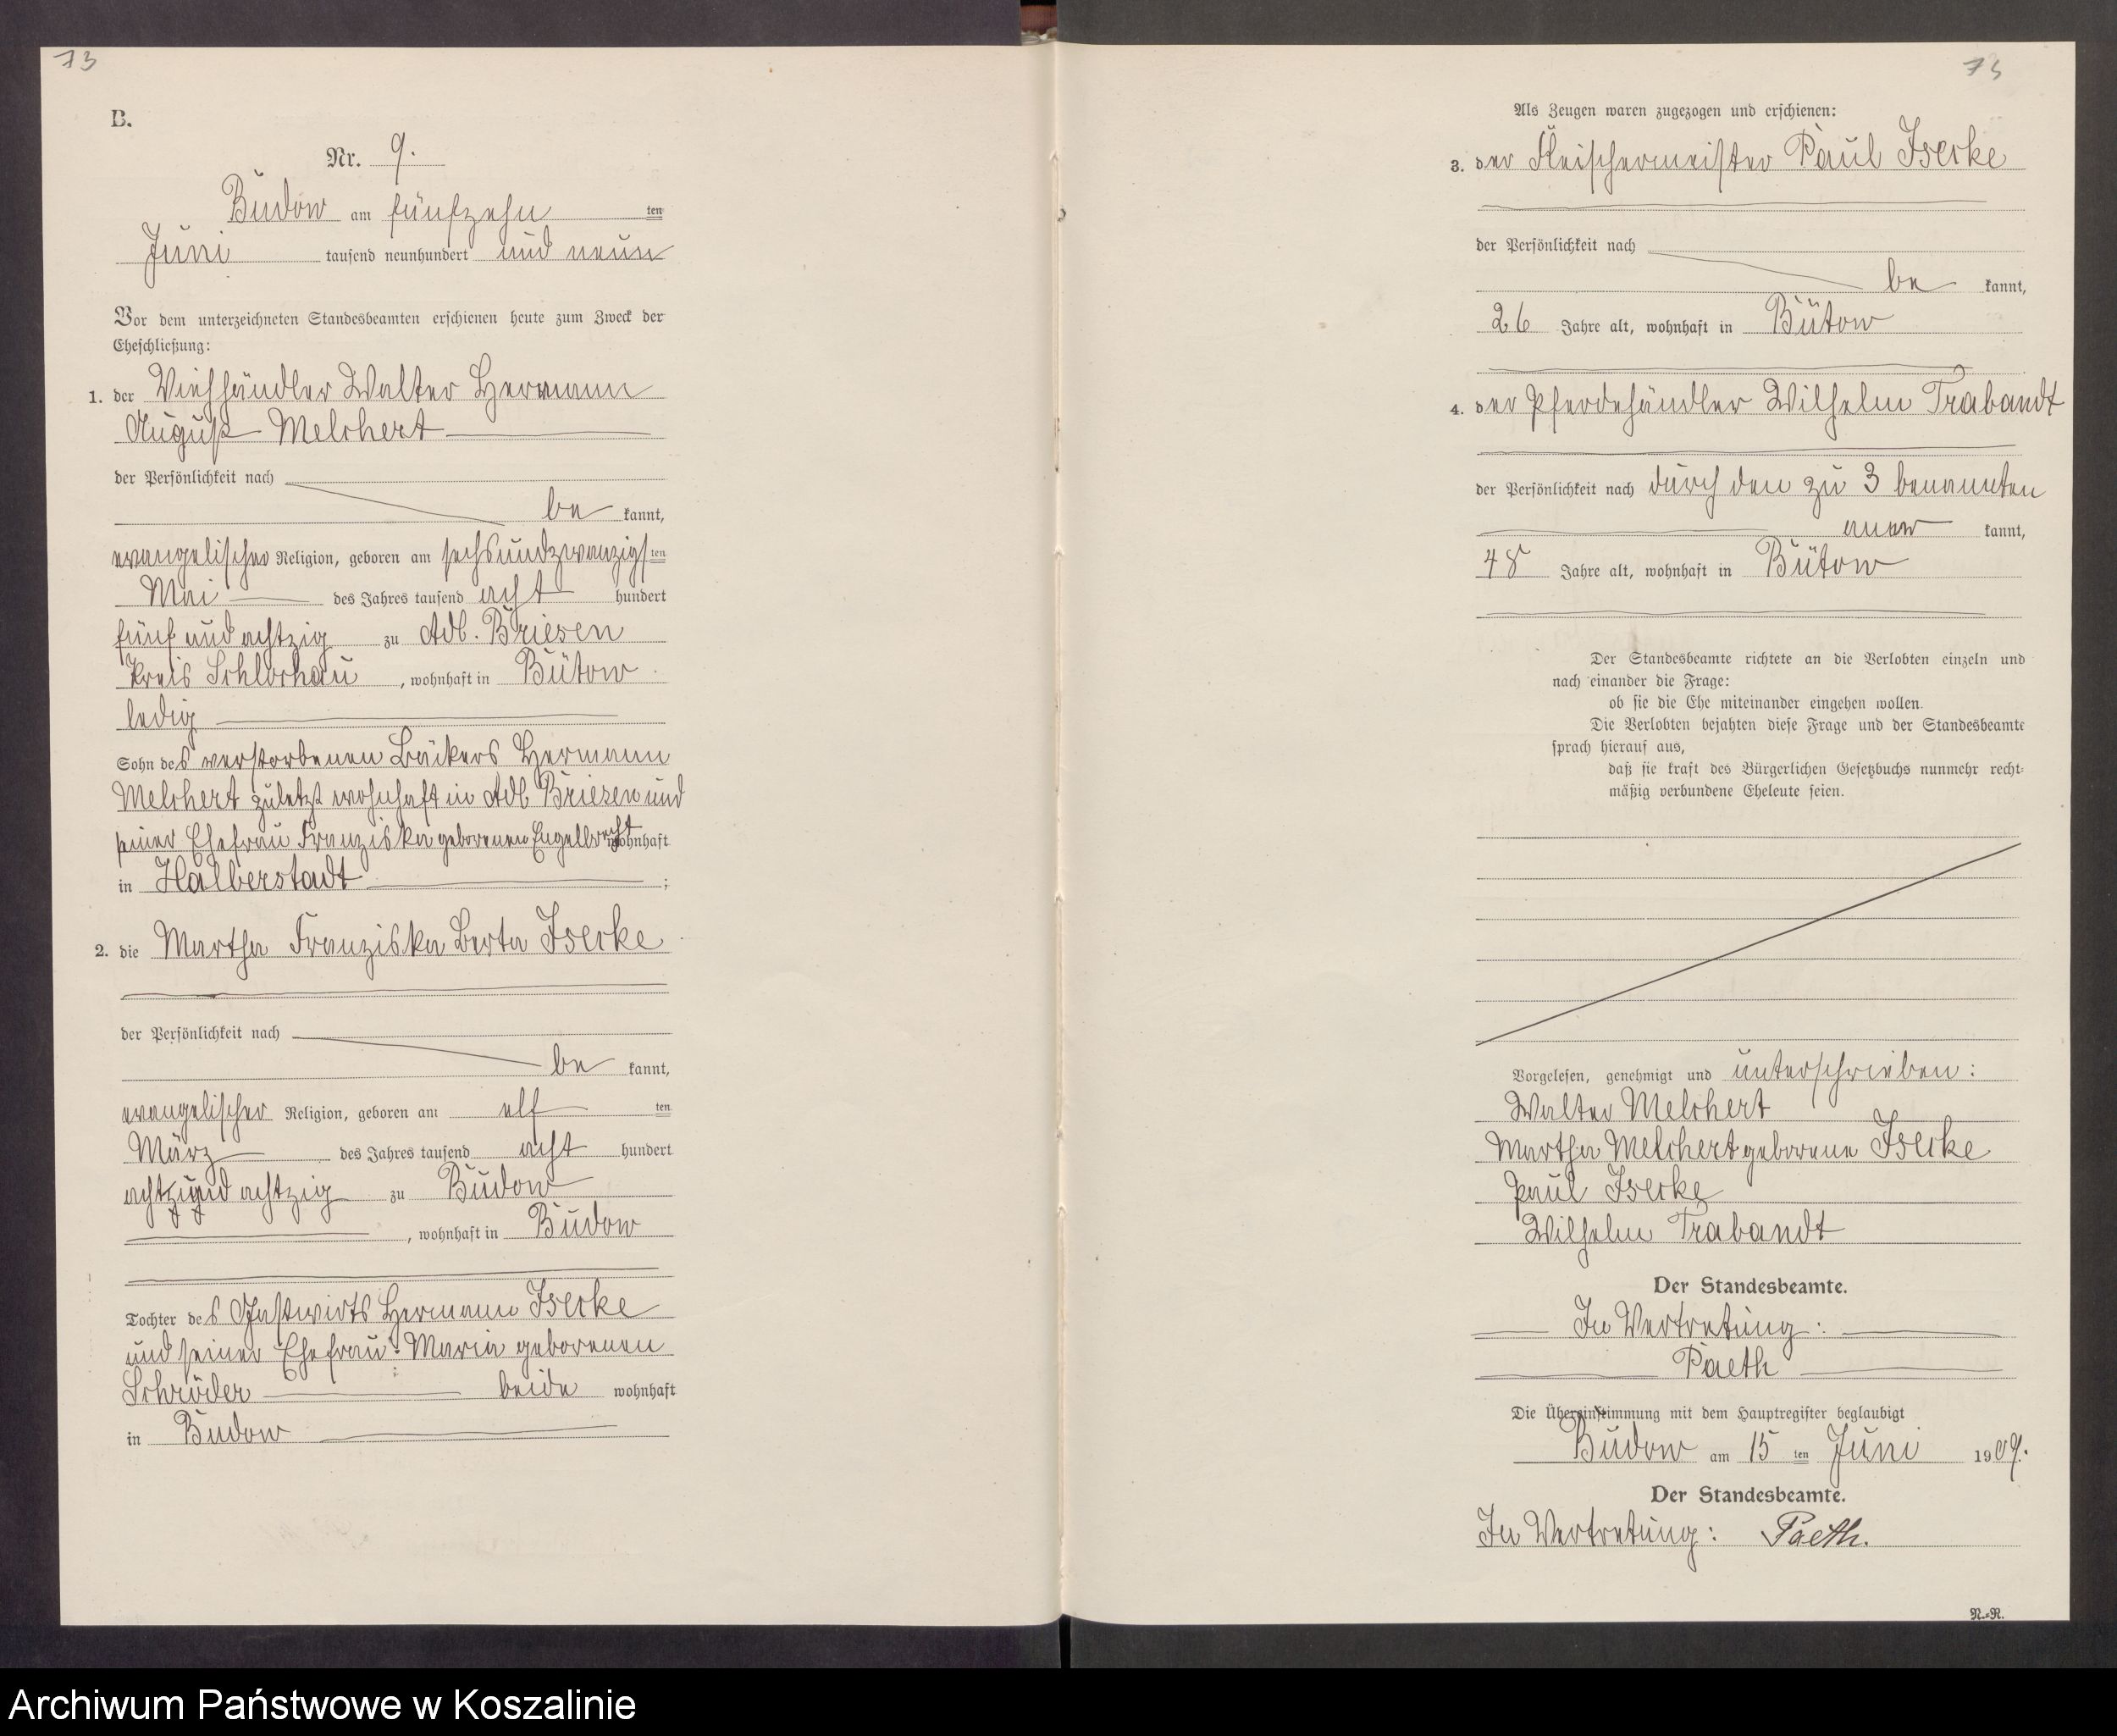 73
B.
Nr. 9.
Budow am fünfzehn ten
Juni tausend neunhundert und neun
Vor dem unterzeichneten Standesbeamten erschienen heute zum Zweck der
Eheschließung:
1. der Viehhändler Walter Hermann
August Melchert
der Persönlichkeit nach
be kannt,
evangelischer Religion, geboren am sechsundzwanzigsten
Mai des Jahres tausend acht hundert
fünf und achtzig zu Adl. Briesen
Kreis Schlochau, wohnhaft in Bütow
ledig
Sohn des verstorbenen Bäckers Hermann
Melchert zuletzt wohnhaft in Adl. Briesen und
seiner Ehefrau Franziska geborenen Engelbrecht wohnhaft
in Halberstadt;
2. die Martha Franziska Berta Iserke
der Persönlichkeit nach
be kannt,
evangelischer Religion, geboren am elf ten
März des Jahres tausend acht hundert
achtzig zu Budow
, wohnhaft in Budow
Tochter des Gastwirts Hermann Iserke
und seiner Ehefrau Maria geborenen
Schröder beide wohnhaft
in Budow
Als Zeugen waren zugezogen und erschienen:
3. der Fleischermeister Paul Iserke
der Persönlichkeit nach
be kannt,
26 Jahre alt, wohnhaft in Bütow
4. der Pferdehändler Wilhelm Trabandt
der Persönlichkeit nach durch den zu 3 benannten
aner kannt,
48 Jahre alt, wohnhaft in Bütow
Der Standesbeamte richtete an die Verlobten einzeln und
nach einander die Frage:
ob sie die Ehe miteinander eingehen wollen.
Die Verlobten bejahten diese Frage und der Standesbeamte
sprach hierauf aus,
daß sie kraft des Bürgerlichen Gesetzbuchs nunmehr recht-
mäßig verbundene Eheleute seien.
Vorgelesen, genehmigt und unterschrieben:
Walter Melchert
Martha Melchert geborene Iserke
Paul Iserke
Wilhelm Trabandt
Der Standesbeamte.
In Vertretung:
Paeth
Die Übereinstimmung mit dem Hauptregister beglaubigt
Budow am 15 ten Juni 1909.
Der Standesbeamte.
In Vertretung: Paeth.
N.-R.
Archiwum Państwowe w Koszalinie